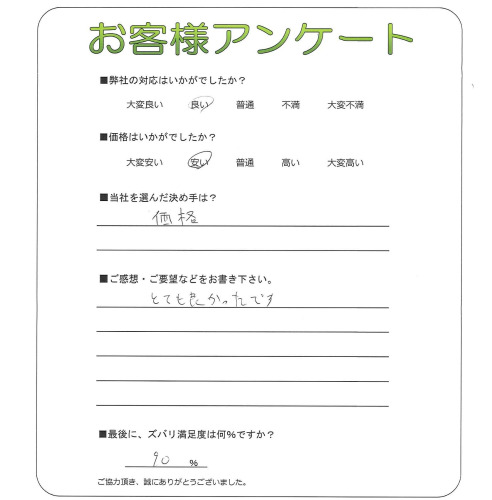 お客様アンケート
■弊社の対応はいかがでしたか?
大変良い 良い 普通 不満 大変不満
■価格はいかがでしたか?
大変安い 安い 普通 高い 大変高い
■当社を選んだ決め手は?
価格
■ご感想・ご要望などをお書き下さい。
とても良かったです
■最後に、ズバリ満足度は何%ですか?
90 %
ご協力頂き、誠にありがとうございました。